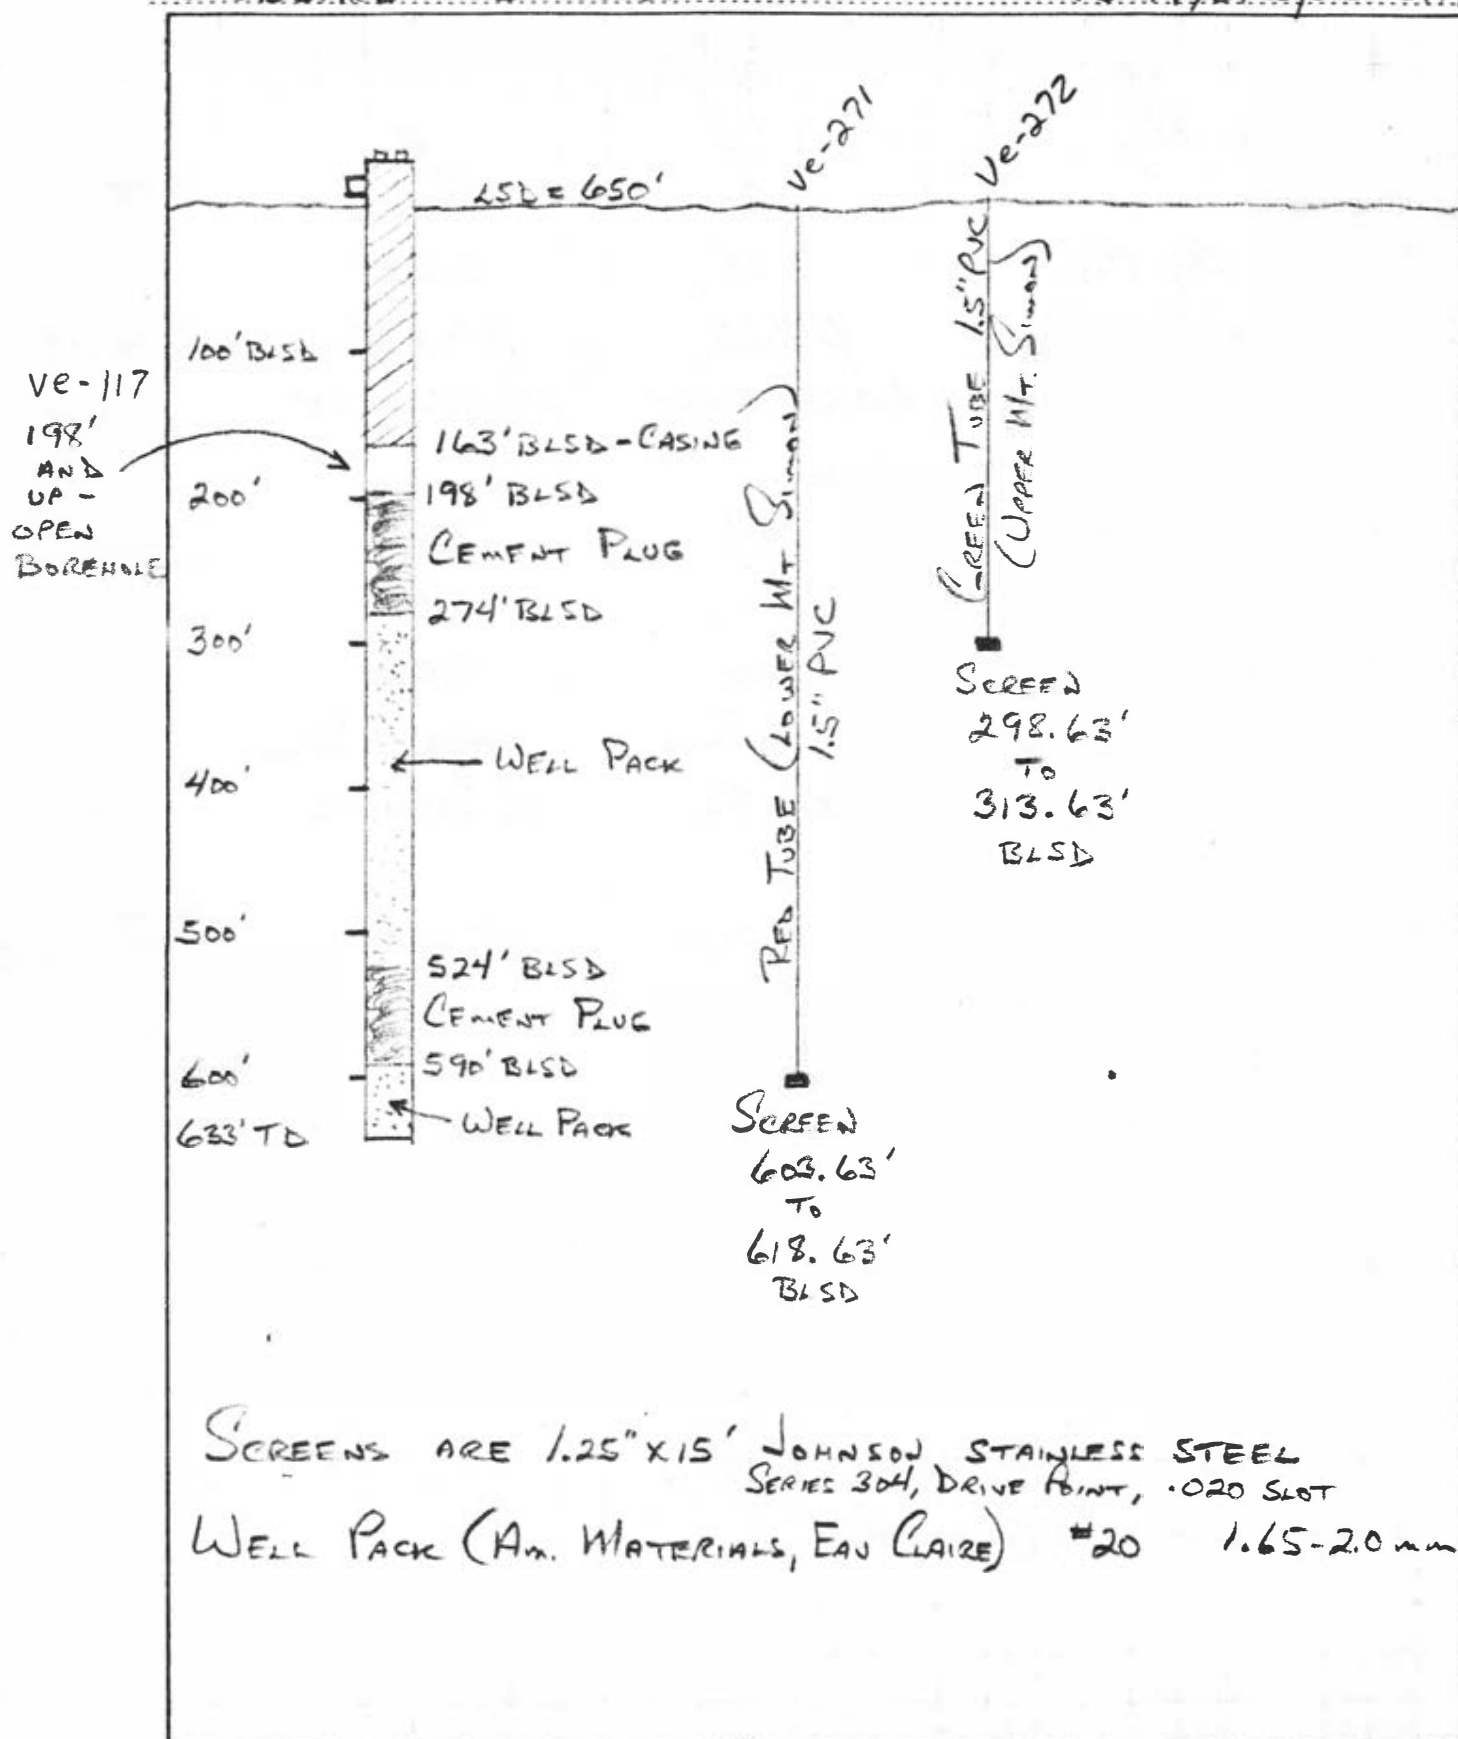 Ve-271
Ve-272
LSD = 650'
100' BLSD
Ve-117
198'
AND
UP -
OPEN
BOREHOLE
163' BLSD - CASING
200'
198' BLSD
CEMENT PLUG
274' BLSD
300'
WELL PACK
400'
500'
524' BLSD
CEMENT PLUG
590' BLSD
600'
WELL PACK
633' TD
RED TUBE (LOWER MT SIMON)
1.5" PVC
SCREEN
603.63'
TO
618.63'
BLSD
GREEN TUBE 1.5" PVC
(UPPER MT. SIMON)
SCREEN
298.63'
TO
313.63'
BLSD
SCREENS ARE 1.25" X 15' JOHNSON STAINLESS STEEL
SERIES 304, DRIVE POINT, .020 SLOT
WELL PACK (AM. MATERIALS, EAU CLAIRE) #20 1.65-2.0 mm